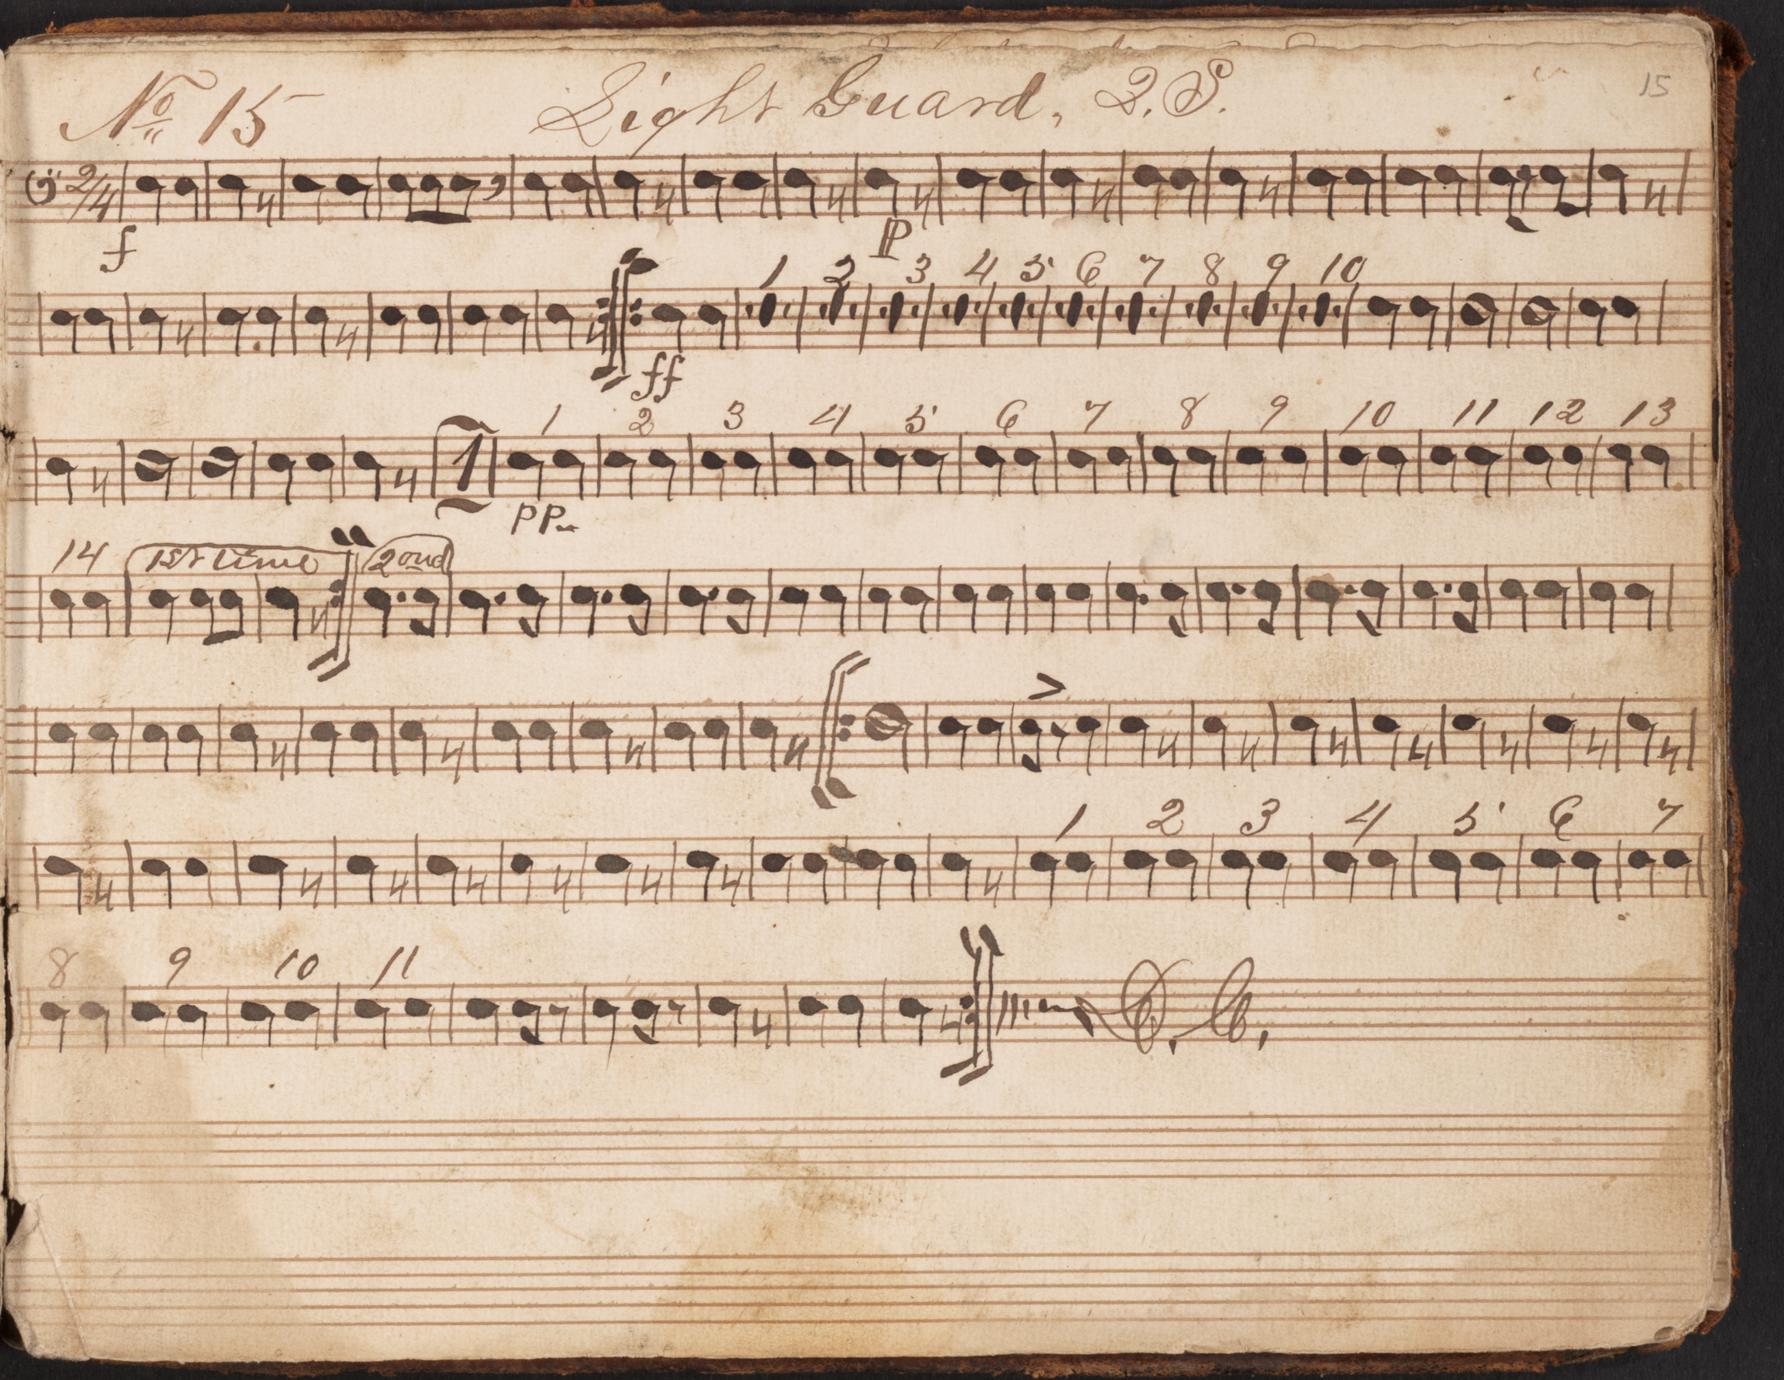 No 15 Light Guard, Q.S. 15
2/4
f P
1 2 3 4 5 6 7 8 9 10
ff
1 2 3 4 5 6 7 8 9 10 11 12 13
1
PP
14 1st time 2ond
>
1 2 3 4 5 6 7
8 9 10 11